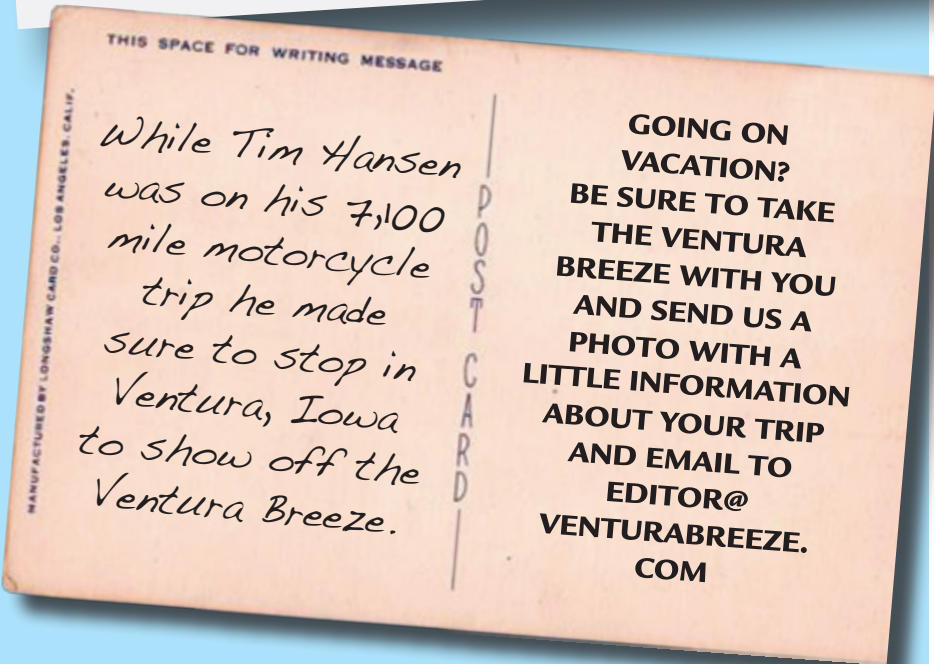 THIS SPACE FOR WRITING MESSAGE
MANUFACTURED BY LONGSHAW CARD CO., LOS ANGELES, CALIF.
While Tim Hansen
was on his 7,100
mile motorcycle
trip he made
sure to stop in
Ventura, Iowa
to show off the
Ventura Breeze.
POST CARD
GOING ON
VACATION?
BE SURE TO TAKE
THE VENTURA
BREEZE WITH YOU
AND SEND US A
PHOTO WITH A
LITTLE INFORMATION
ABOUT YOUR TRIP
AND EMAIL TO
EDITOR@
VENTURABREEZE.
COM